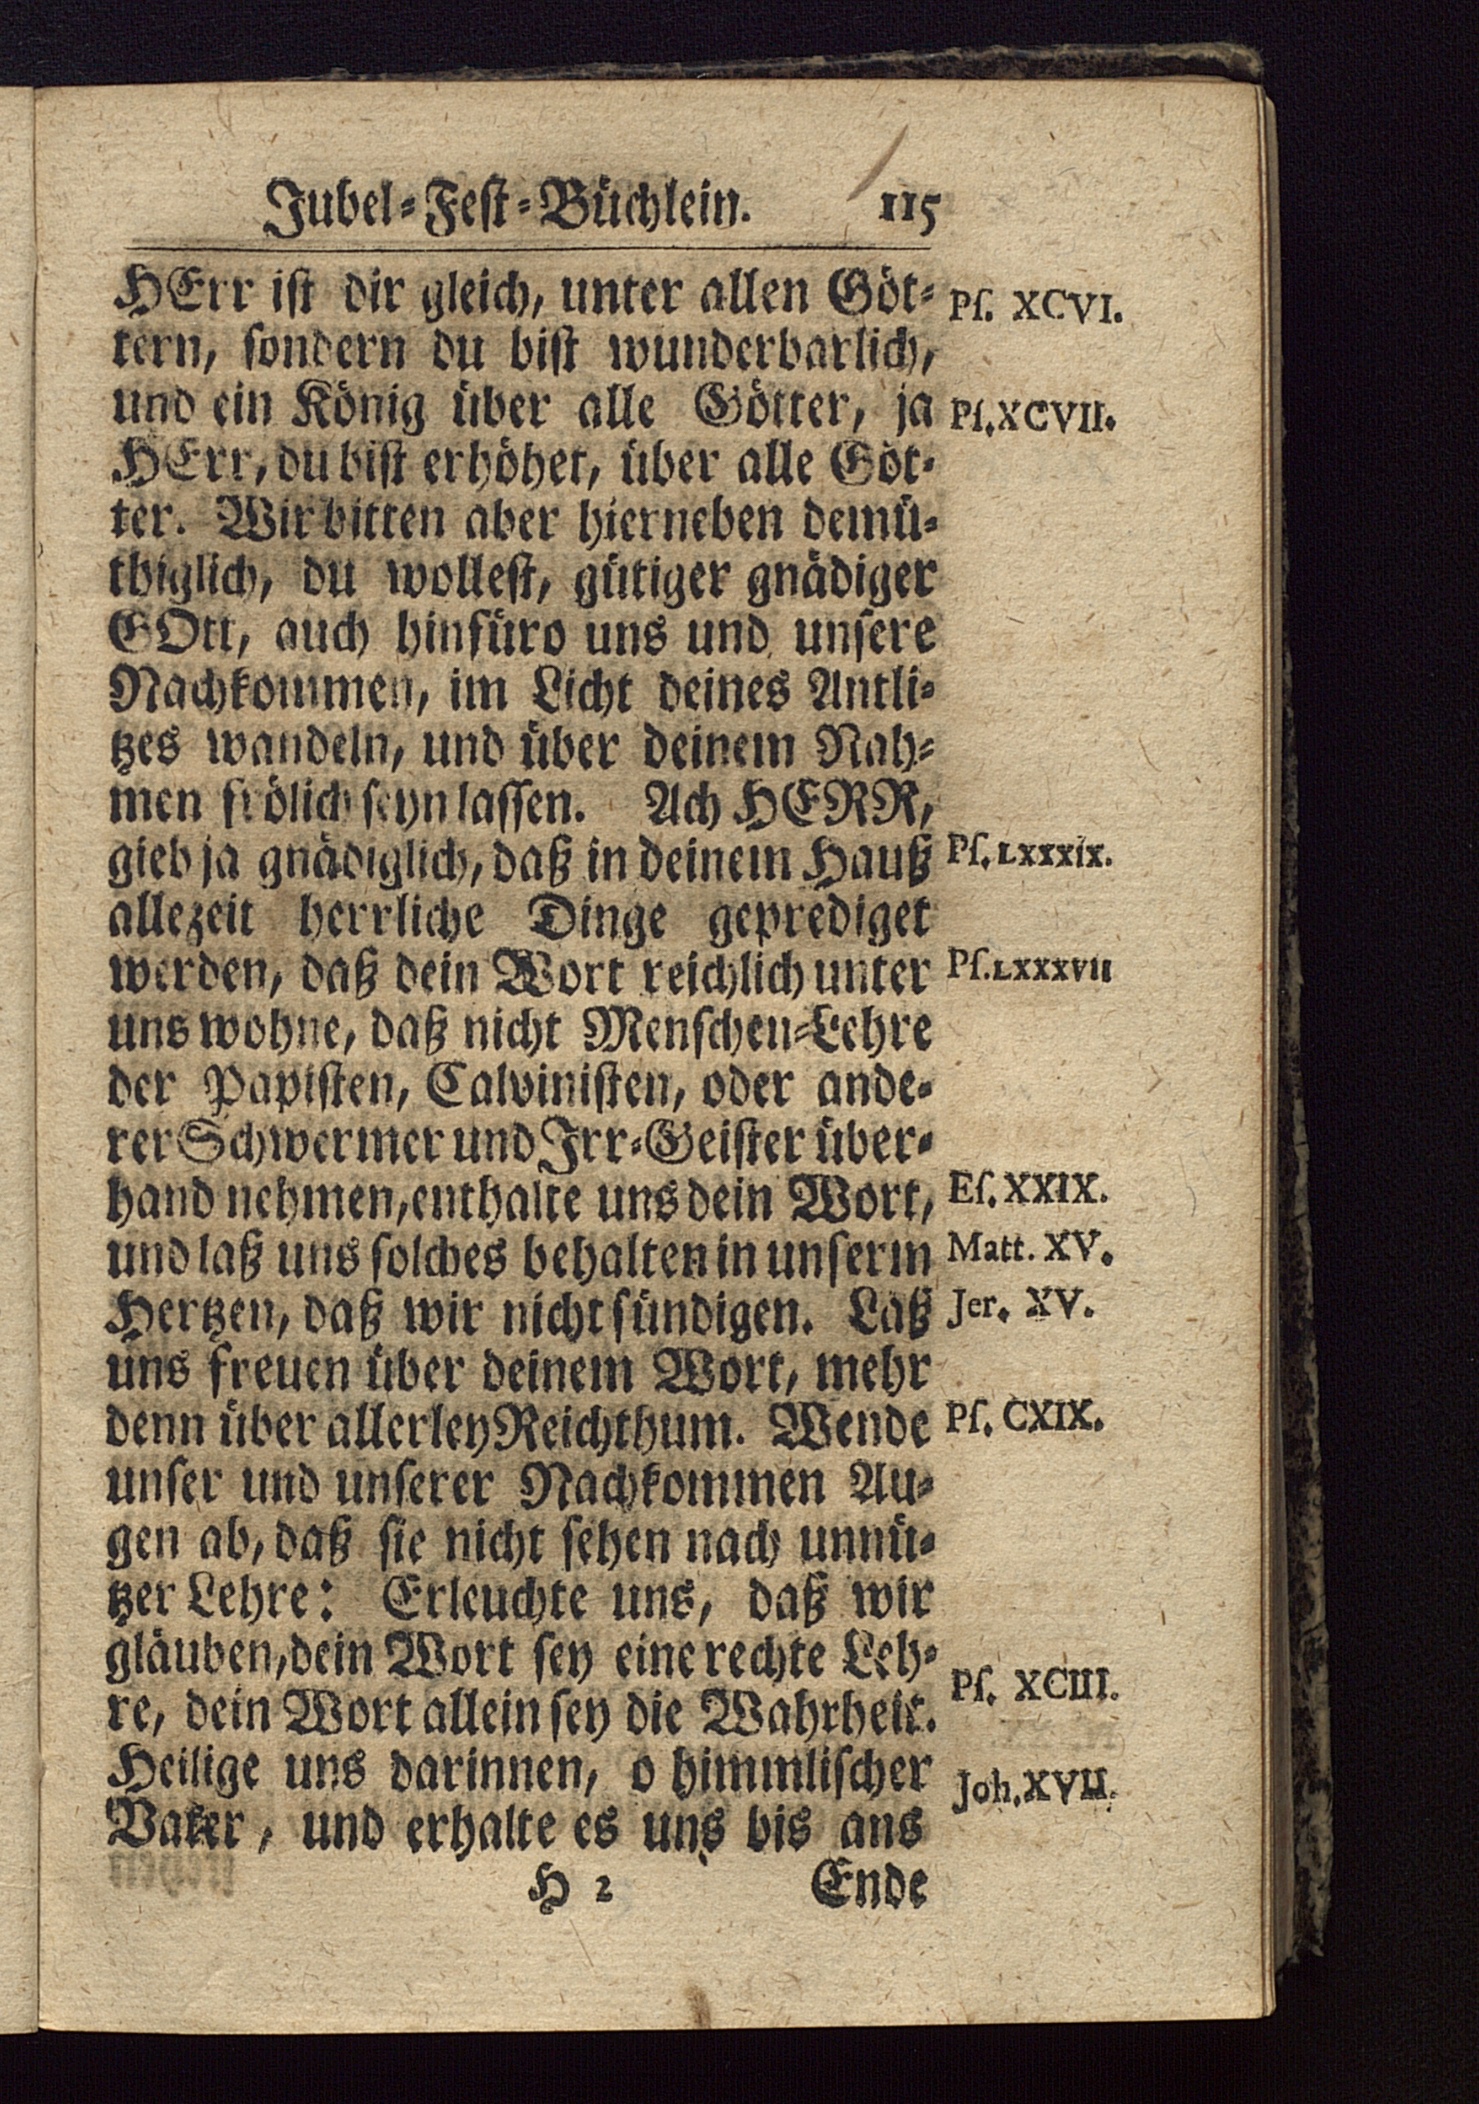 Jubel-Fest-Büchlein. 115
HErr ist dir gleich, unter allen Göt-
tern, sondern du bist wunderbarlich,
und ein König über alle Götter, ja
HErr, du bist erhöhet, über alle Göt-
ter. Wir bitten aber hierneben demü-
thiglich, du wollest, gütiger gnädiger
GOtt, auch hinfüro uns und unsere
Nachkommen, im Licht deines Antli-
tzes wandeln, und über deinem Nah-
men frölich seyn lassen. Ach HERR,
gieb ja gnädiglich, daß in deinem Hauß
allezeit herrliche Dinge geprediget
werden, daß dein Wort reichlich unter
uns wohne, daß nicht Menschen-Lehre
der Papisten, Calvinisten, oder ande-
rer Schwermer und Irr-Geister über-
hand nehmen, enthalte uns dein Wort,
und laß uns solches behalten in unserm
Hertzen, daß wir nicht sündigen. Laß
uns freuen über deinem Wort, mehr
denn über allerley Reichthum. Wende
unser und unserer Nachkommen Au-
gen ab, daß sie nicht sehen nach unnü-
tzer Lehre: Erleuchte uns, daß wir
gläuben, dein Wort sey eine rechte Leh-
re, dein Wort allein sey die Wahrheit.
Heilige uns darinnen, o himmlischer
Vater, und erhalte es uns bis ans
H 2 Ende
Ps. XCVI.
Ps. XCVII.
Ps. LXXXIX.
Ps. LXXXVII
Es. XXIX.
Matt. XV.
Jer. XV.
Ps. CXIX.
Ps. XCIII.
Joh. XVII.